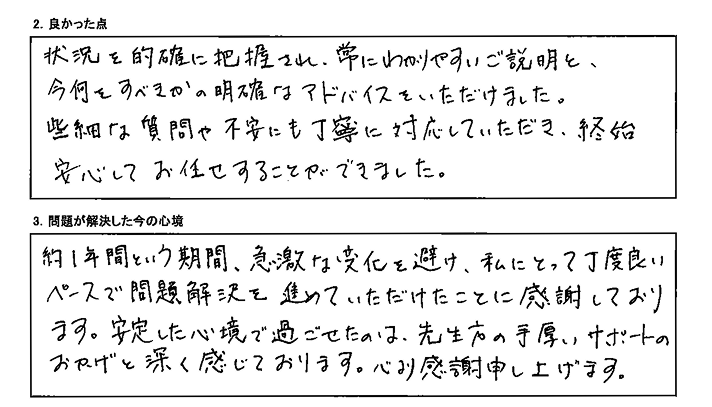 2. 良かった点
状況を的確に把握され、常にわかりやすいご説明と、
今何をすべきかの明確なアドバイスをいただけました。
些細な質問や不安にも丁寧に対応していただき、終始
安心してお任せすることができました。
3. 問題が解決した今の心境
約1年間という期間、急激な変化を避け、私にとって丁度良い
ペースで問題解決を進めていただけたことに感謝しており
ます。安定した心境で過ごせたのは、先生方の手厚いサポートの
おかげと深く感じております。心より感謝申し上げます。